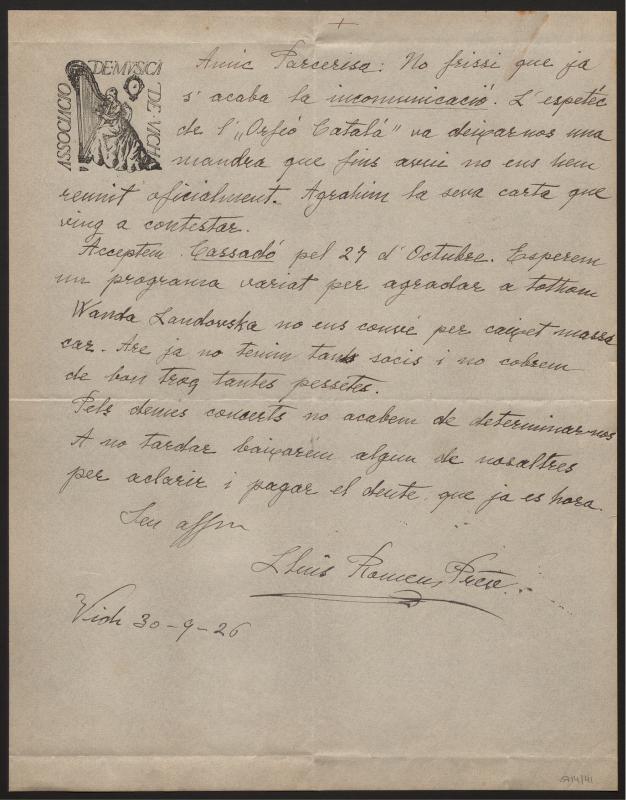 +
ASSOCIACIO DE MVSICA DE VICH
Amic Parcerisa: No frissi que ja
s'acaba la incomunicació. L'espetéc
de l' „Orfeó Català" va deixarnos una
mandra que fins avui no ens hem
reunit oficialment. Agrahim la seva carta que
ving a contestar.
Acceptem Cassadó pel 27 d'Octubre. Esperem
un programa variat per agradar a tothom
Wanda Landowska no ens convé per caixet massa
car. Are ja no tenim tants socis i no cobrem
de bon troç tantes pessétes.
Pels demés concerts no acabem de determinar-nos
A no tardar baixarem algun de nosaltres
per aclarir i pagar el deute, que ja es hora.
Seu affm
Lluís Romeu, Pvre.
Vich 30-9-26